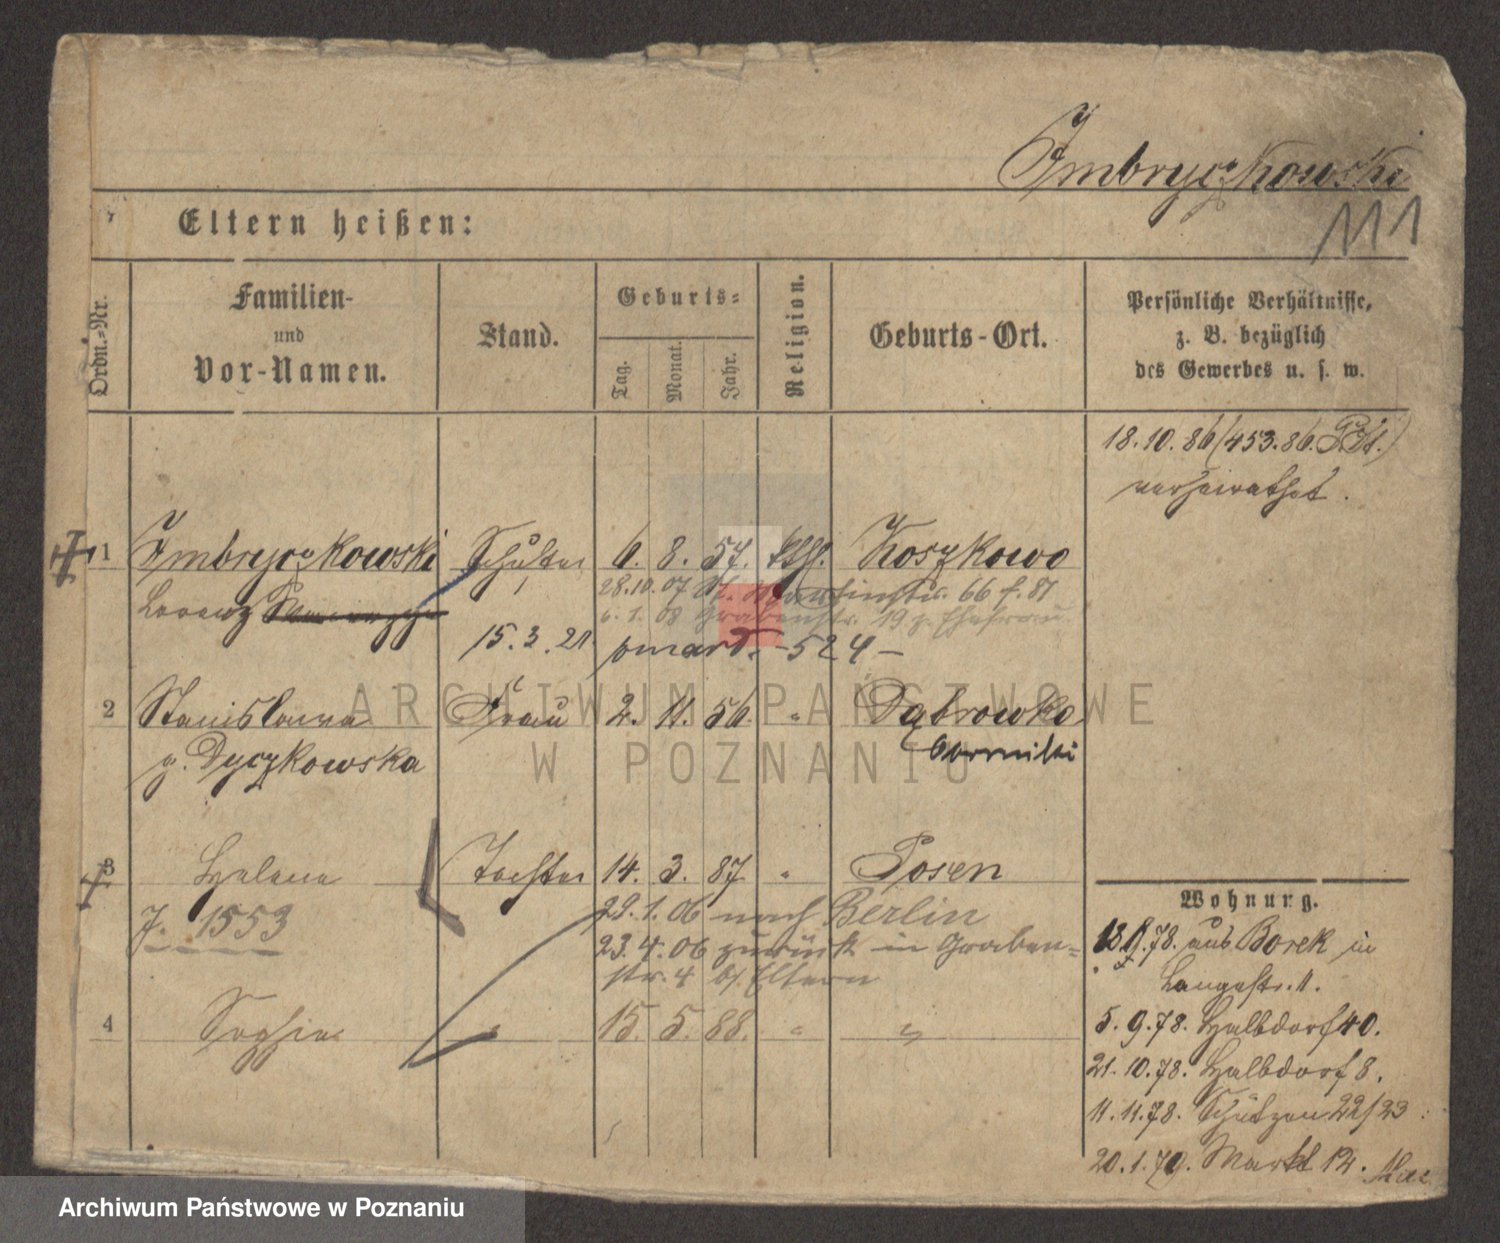 Imbryczkowski
111
Eltern heißen:
Ordn.-Nr.
Familien-
und
Vor-Namen.
Stand.
Geburts-
Tag.
Monat.
Jahr.
Religion.
Geburts-Ort.
Persönliche Verhältnisse,
z. B. bezüglich
des Gewerbes u. s. w.
18.10.86 (453.86.
verheirathet.
1 Imbryczkowski Schuster 6. 8. 57. kath. Koszkowo
Lorenz
28.10.07 St. Martinstr. 66 f. 81
6.1.08 Grabenstr. 19 z. Ehefrau
15.3.21 pmard. -524-
2 Stanislawa Frau 2. 11. 56. " Dąbrowka
g. Dyczkowska
3 Helena Tochter 14. 3. 87. " Posen
J. 1553
29.1.06 nach Berlin
23.4.06 zurück in Graben-
str. 4 b/ Eltern
4 Sophie " 15. 5. 88. " "
Wohnung.
78. aus Borek in
Langestr. 11.
5.9.78. Halbdorf 40.
21.10.78. Halbdorf 8.
11.11.78. Schützen 22/23
20.1.79. Markt 12.
ARCHIWUM PAŃSTWOWE
W POZNANIU
Archiwum Państwowe w Poznaniu